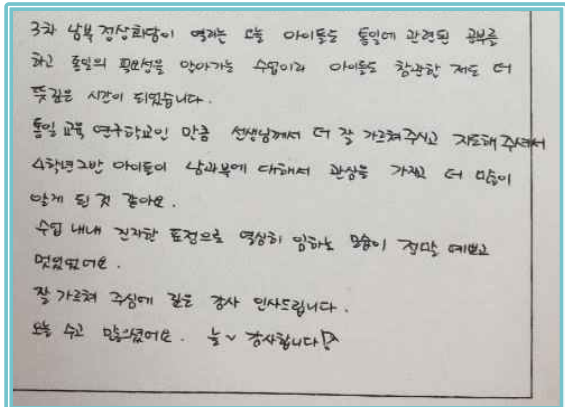 3차 남북 정상회담이 열리는 오늘 아이들도 통일에 관련된 공부를
하고 통일의 필요성을 알아가는 수업이라 아이들도 참관한 저도 더
뜻깊은 시간이 되었습니다.
통일 교육 연구학교인 만큼 선생님께서 더 잘 가르쳐주시고 지도해 주셔서
4학년 2반 아이들이 남과북에 대해서 관심을 가지고 더 많이
알게 된 것 같아요.
수업 내내 진지한 표정으로 열심히 임하는 모습이 정말 예쁘고
멋있었어요.
잘 가르쳐 주심에 깊은 감사 인사드립니다.
오늘 수고 많으셨어요. 늘~ 감사합니다